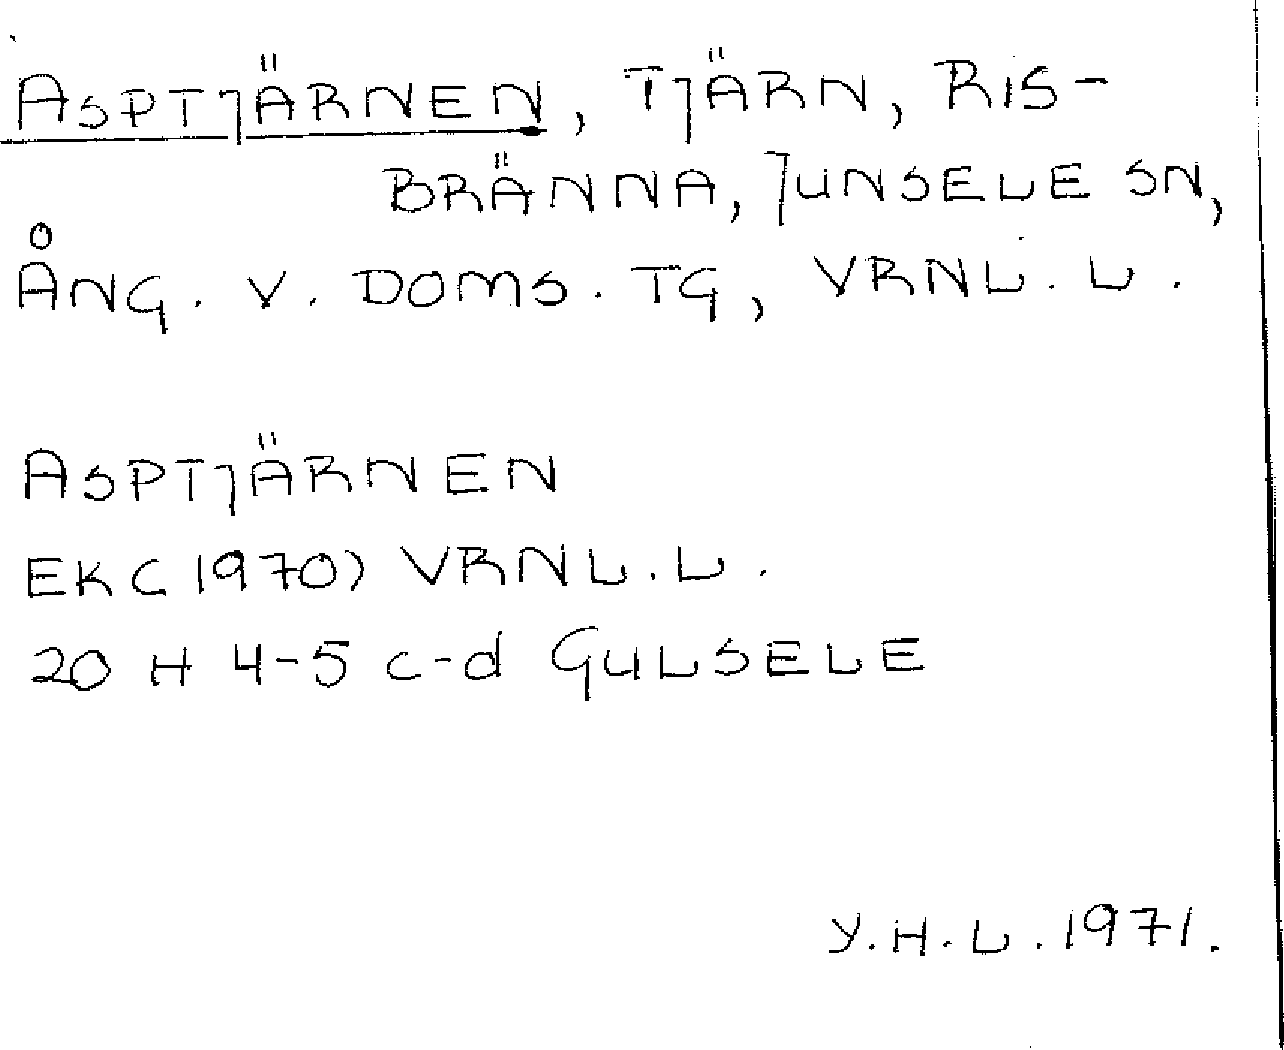 ASPTJÄRNEN, TJÄRN, RIS-
BRÄNNA, JUNSELE SN,
ÅNG. V. DOMS. TG, VRNL. L.
ASPTJÄRNEN
EK (1970) VRNL. L.
20 H 4-5 c-d GULSELE
Y.H.L. 1971.